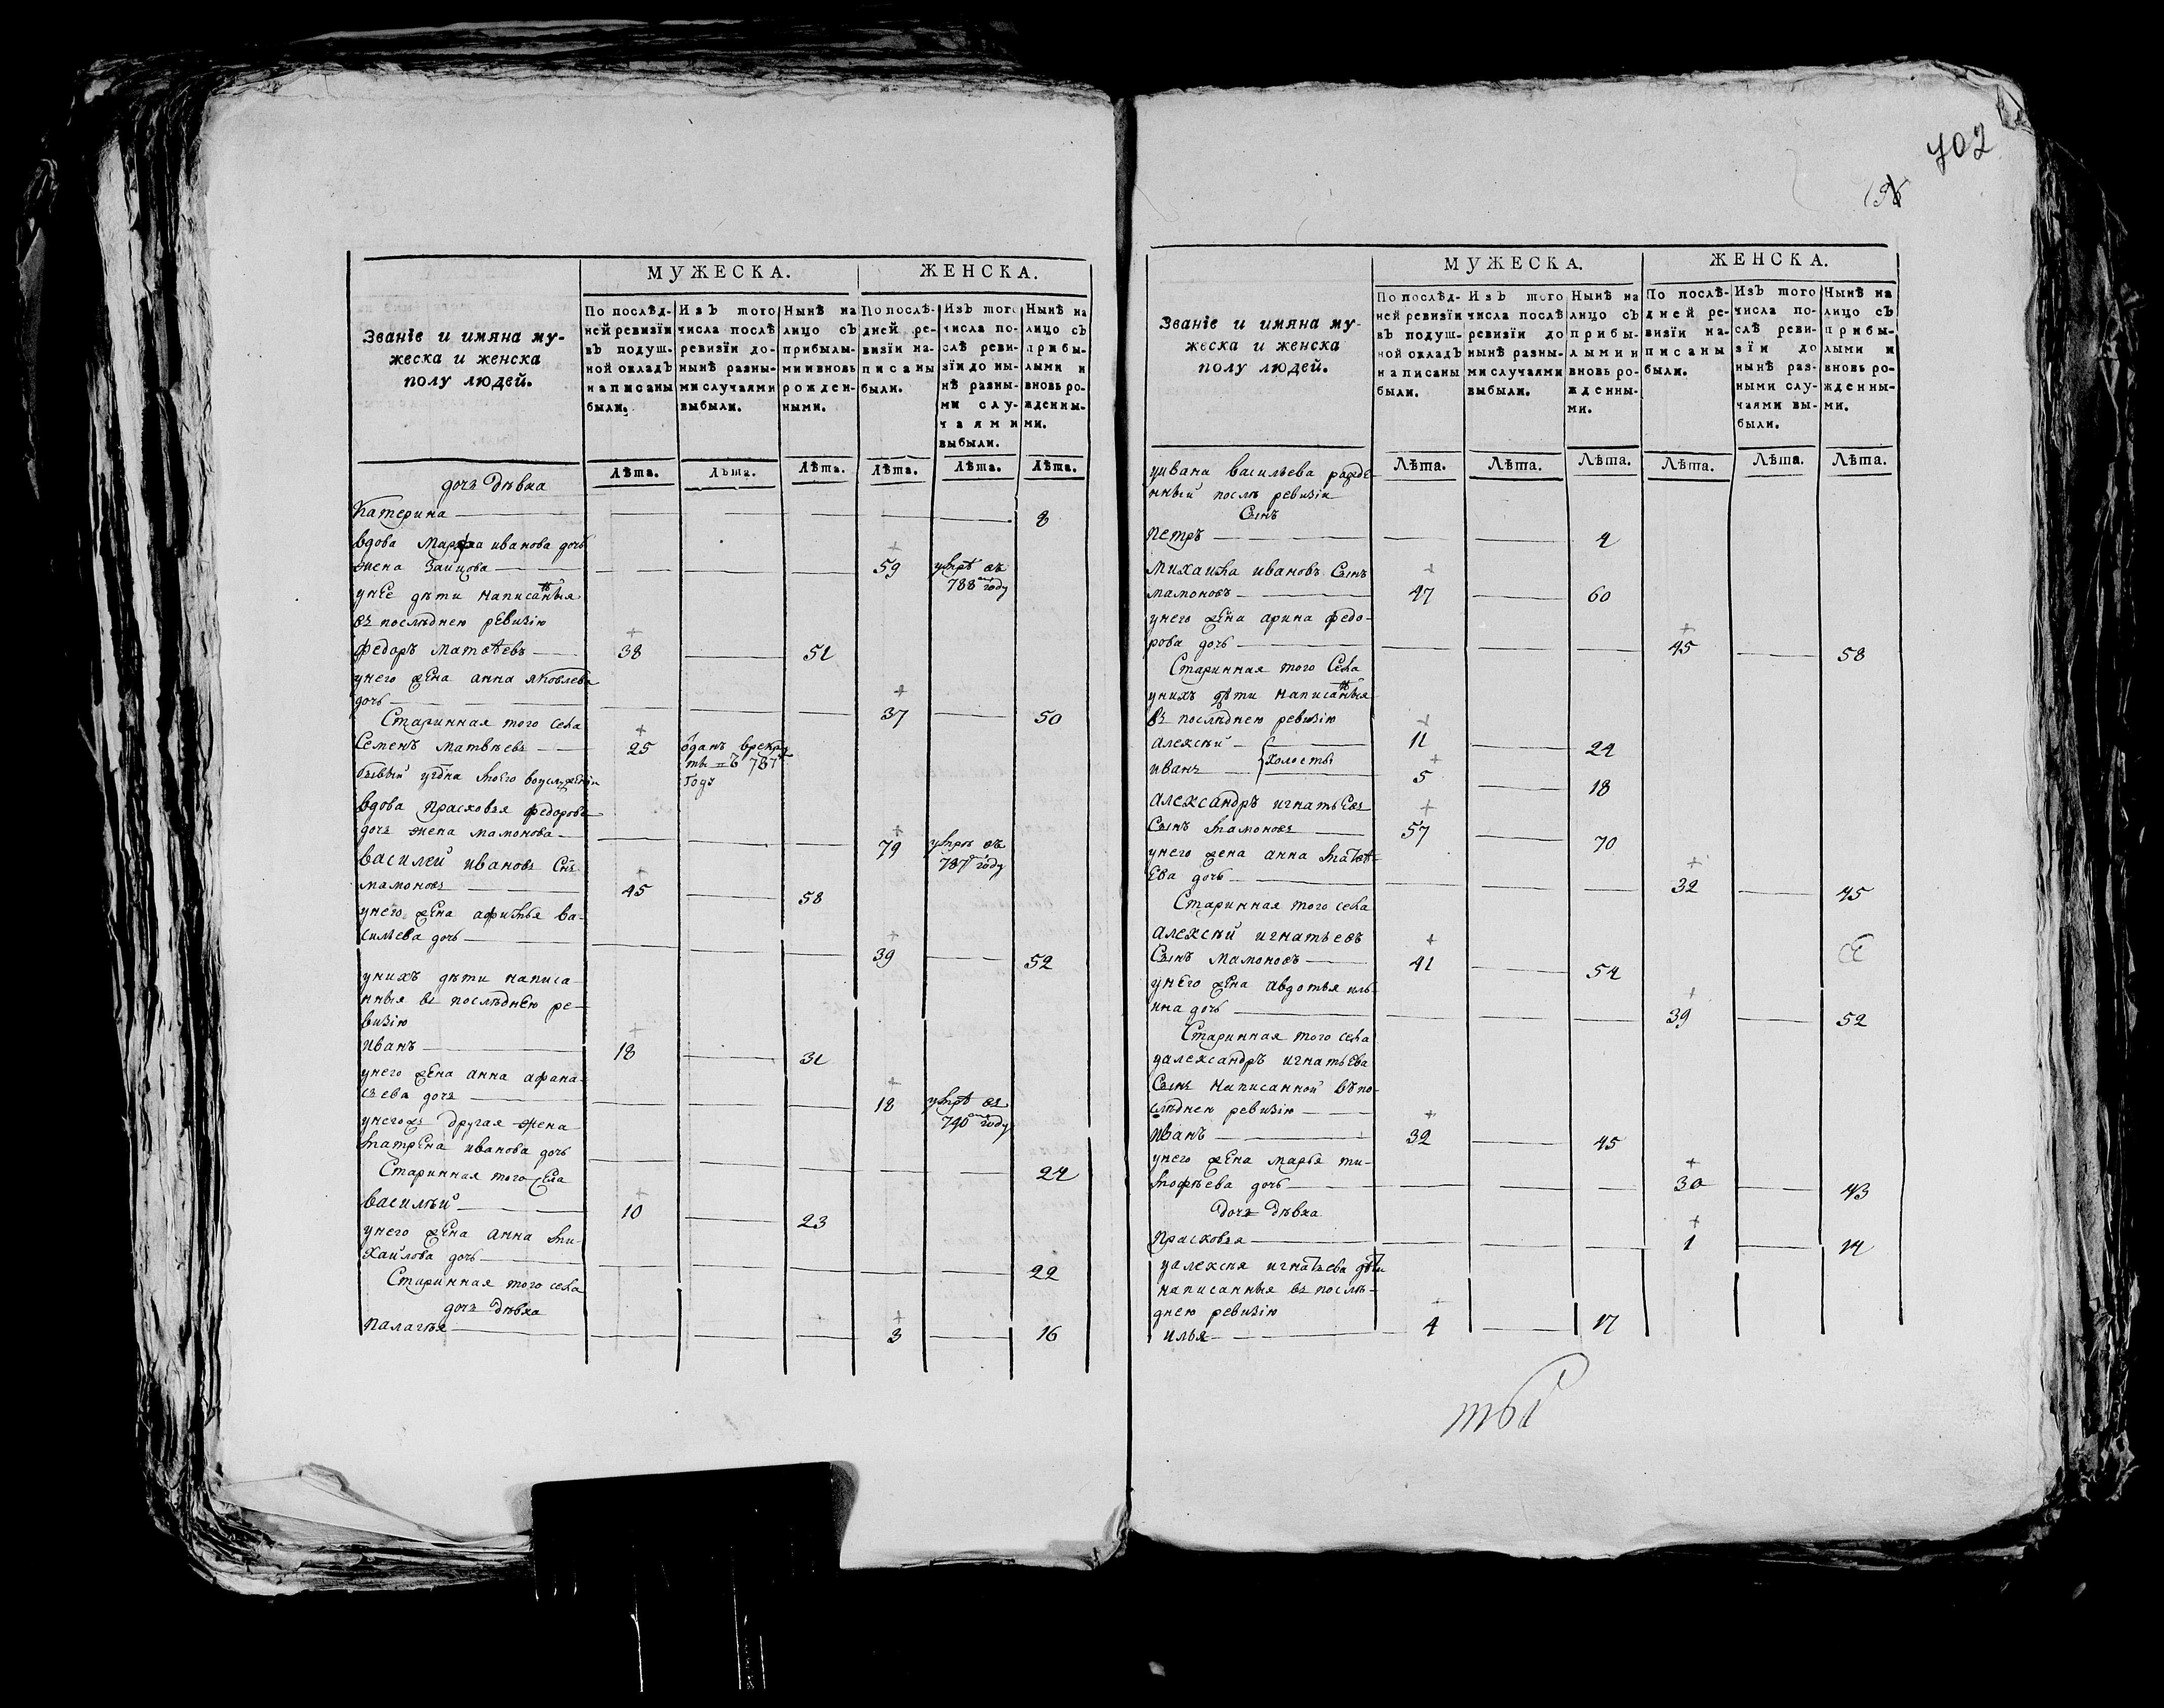 702
196
МУЖЕСКА. ЖЕНСКА.
Званіе и имяна му-
жеска и женска
полу людей.
По послѣд-
ней ревизіи
въ подуш-
ной окладъ
написаны
были.
Изъ того
числа послѣ
ревизіи до-
нынѣ разны-
ми случаями
выбыли.
Нынѣ на
лицо съ
прибылы-
ми и вновь
рожден-
ными.
По послѣ-
дней ре-
визіи на-
писаны
были.
Изъ того
числа по-
слѣ реви-
зіи до ны-
нѣ разны-
ми слу-
чаями
выбыли.
Нынѣ на
лицо съ
прибы-
лыми и
вновь ро-
жденны-
ми.
Лѣта. Лѣта. Лѣта. Лѣта. Лѣта. Лѣта.
дочь дѣвка
Катерина 8
вдова Марфа иванова дочь
жена Зайцова 59 умре въ
788 году
унее дѣти написанныя
въ последнею ревизію
федоръ Матвѣевъ 38 51
унего жена анна яковлева
дочь 37 50
Старинная того села
Семенъ Матвѣевъ 25 отданъ врекру
ты въ 787
году
вдова прасковья федорова
дочь жена мамонова 79 умре въ
787 году
василей ивановъ Снъ
мамоновъ 45 58
унего жена афимья ва-
сильева дочь 39 52
унихъ дѣти написа-
нныя въ последнею ре-
визію
иванъ 18 31
унего жена анна афана-
сьева дочь 18 умре въ
790 году
унегожъ другая жена
матрена иванова дочь
Старинная того села 24
василѣй 10 23
унего жена анна ми-
хайлова дочь 22
Старинная того села
дочь дѣвка
палагѣя 3 16
МУЖЕСКА. ЖЕНСКА.
Званіе и имяна му-
жеска и женска
полу людей.
По послѣд-
ней ревизіи
въ подуш-
ной окладъ
написаны
были.
Изъ того
числа послѣ
ревизіи до
нынѣ разны-
ми случаями
выбыли.
Нынѣ на
лицо съ
прибы-
лыми и
вновь ро-
жденны-
ми.
По послѣ-
дней ре-
визіи на-
писаны
были.
Изъ того
числа по-
слѣ реви-
зіи до
нынѣ раз-
ными слу-
чаями вы-
были.
Нынѣ на
лицо съ
прибы-
лыми и
вновь ро-
жденны-
ми.
Лѣта. Лѣта. Лѣта. Лѣта. Лѣта. Лѣта.
уивана васильева рожде-
нный послѣ ревизіи
Сынъ
петръ 4
михаила ивановъ Сынъ
мамоновъ 47 60
унего жена арина федо-
рова дочь 45 58
Старинная того Села
унихъ дѣти написанныя
въ последнею ревизію
алексѣй 11 24
холосты
иванъ 5 18
александръ игнатьевъ
Сынъ мамоновъ 57 70
унего жена анна матвѣ-
ева дочь 32 45
Старинная того села
алексѣй игнатьевъ
Сынъ мамоновъ 41 54
унего жена авдотья иль-
ина дочь 39 52
Старинная того села
уалександръ игнатьева
Сынъ написанной въ по-
следнею ревизію
иванъ 32 45
унего жена марья ти-
мофѣева дочь 30 43
дочь дѣвка
прасковья 1 14
уалексѣя игнатьева дѣти
написанныя въ послѣ-
днею ревизію
илья 4 17